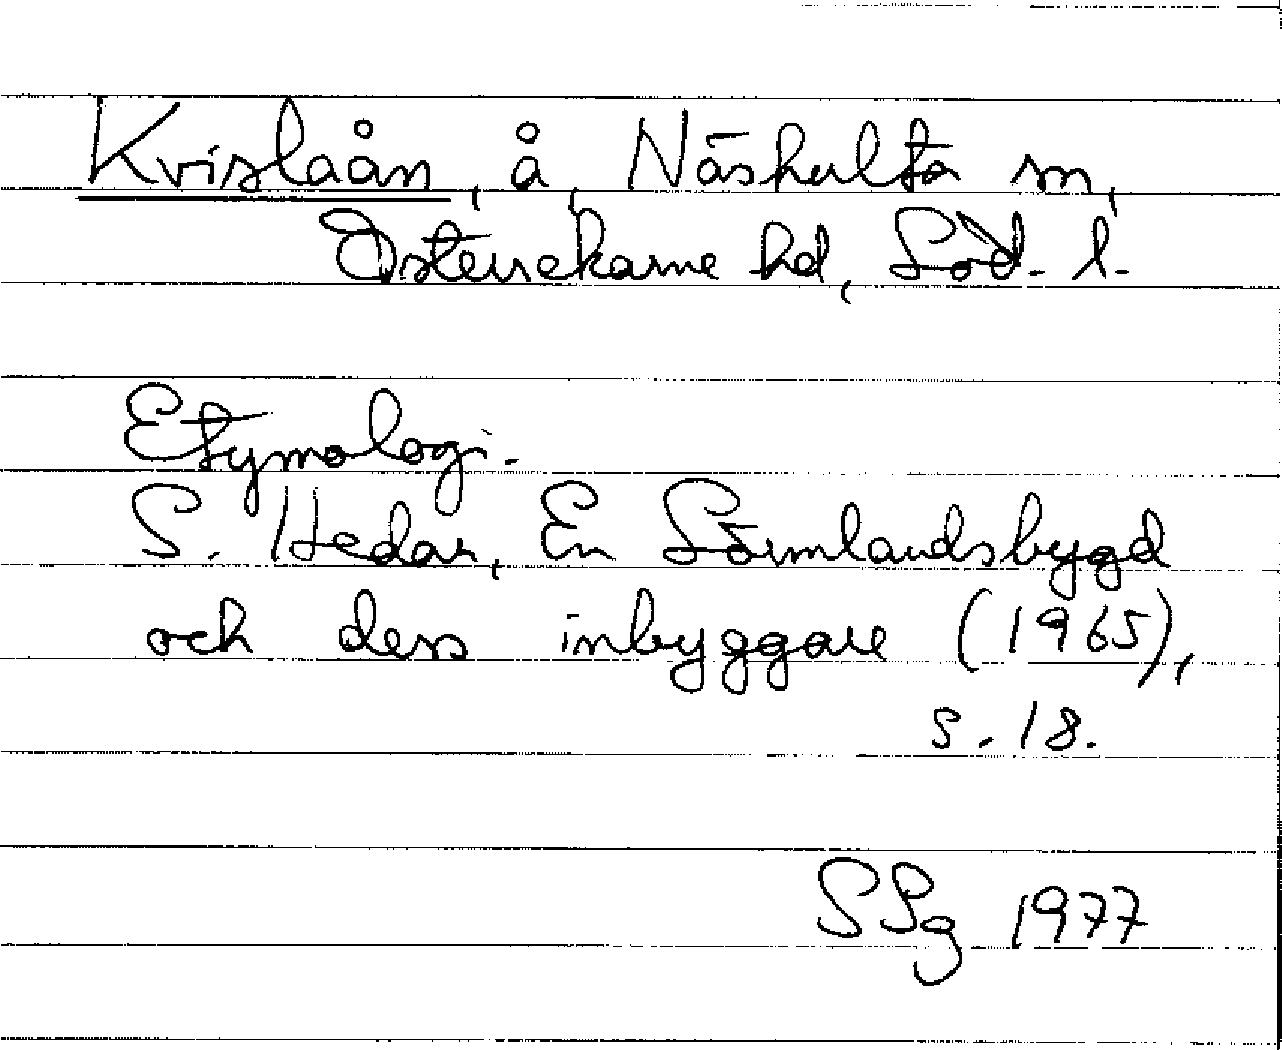 Kvislaån, å, Näshulta sn,
Österrekarne hd, Söd. l.
Etymologi.
S. Hedar, En Sörmlandsbygd
och dess inbyggare (1965),
s. 18.
SSg 1977